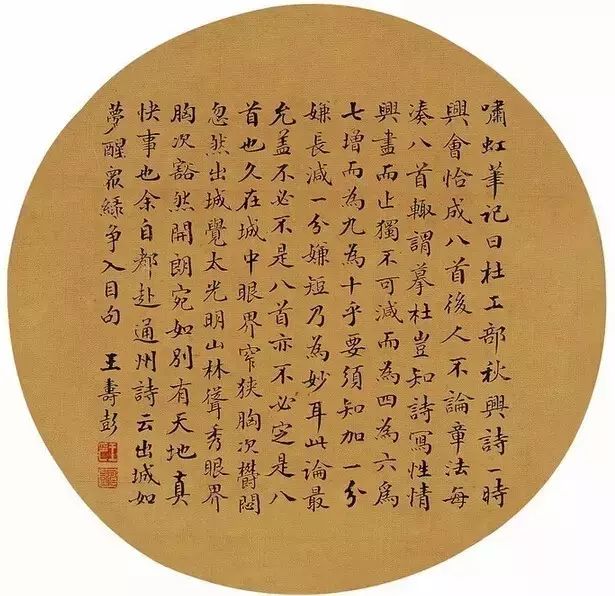 嘯虹筆記曰杜工部秋興詩一時
興會恰成八首後人不論章法每
湊八首輙謂摹杜豈知詩寫性情
興盡而止獨不可減而為四為六為
七增而為九為十乎要須知加一分
嫌長減一分嫌短乃為妙耳此論最
允盖不必不是八首亦不必定是八
首也久在城中眼界窄狹胸次欝悶
忽然出城覺太光明山林聳秀眼界
胸次豁然開朗宛如别有天地真
快事也余自都赴通州詩云出城如
夢醒眾緑争入目句
王壽彭